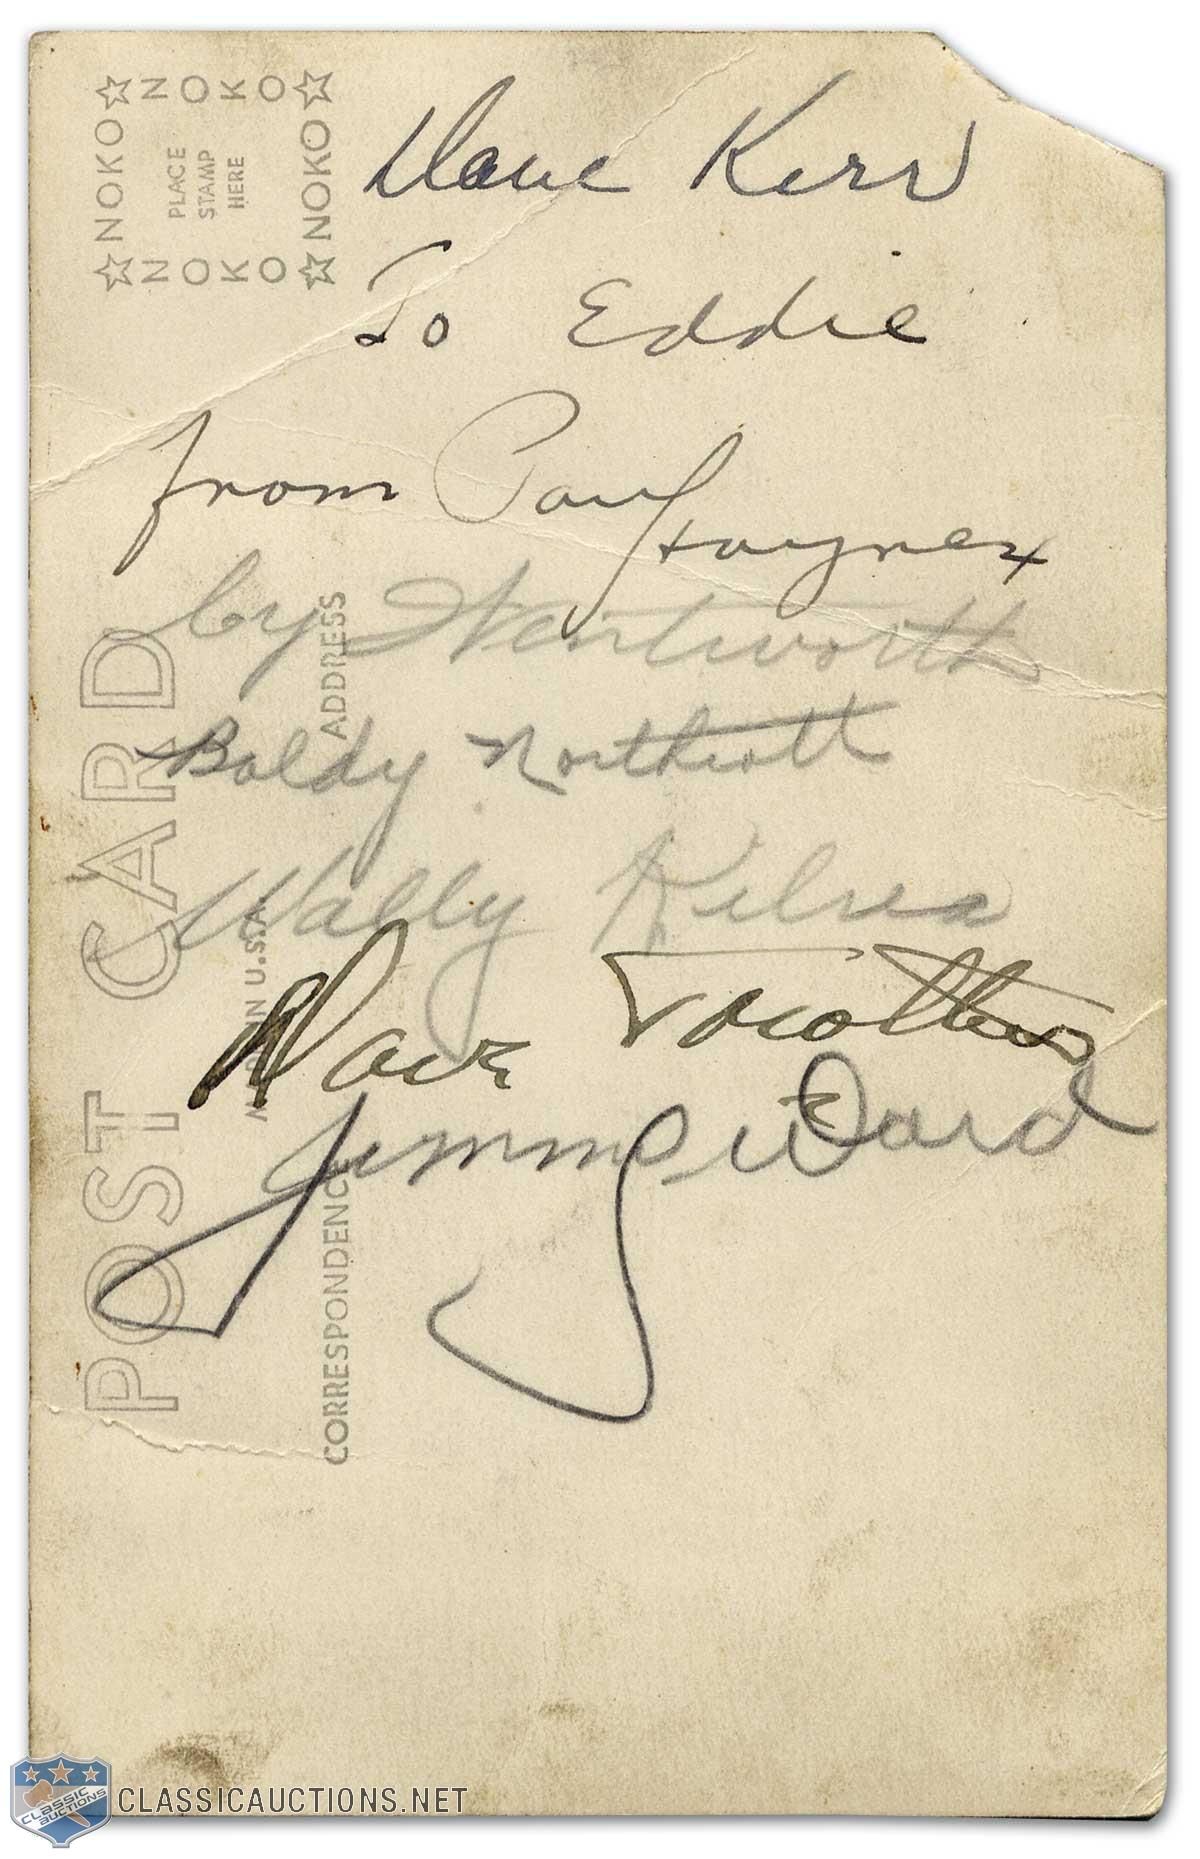 Dave Kerr
To Eddie
from Paul
Haynes
Cy Wentworth
Baldy Northcott
Wally Kilrea
Dave Trottier
Jimmy Ward
NOKO
NOKO
NOKO
NOKO
PLACE
STAMP
HERE
POST CARD
ADDRESS
IN U.S.A.
CORRESPONDENCE
CLASSIC
AUCTIONS
CLASSICAUCTIONS.NET